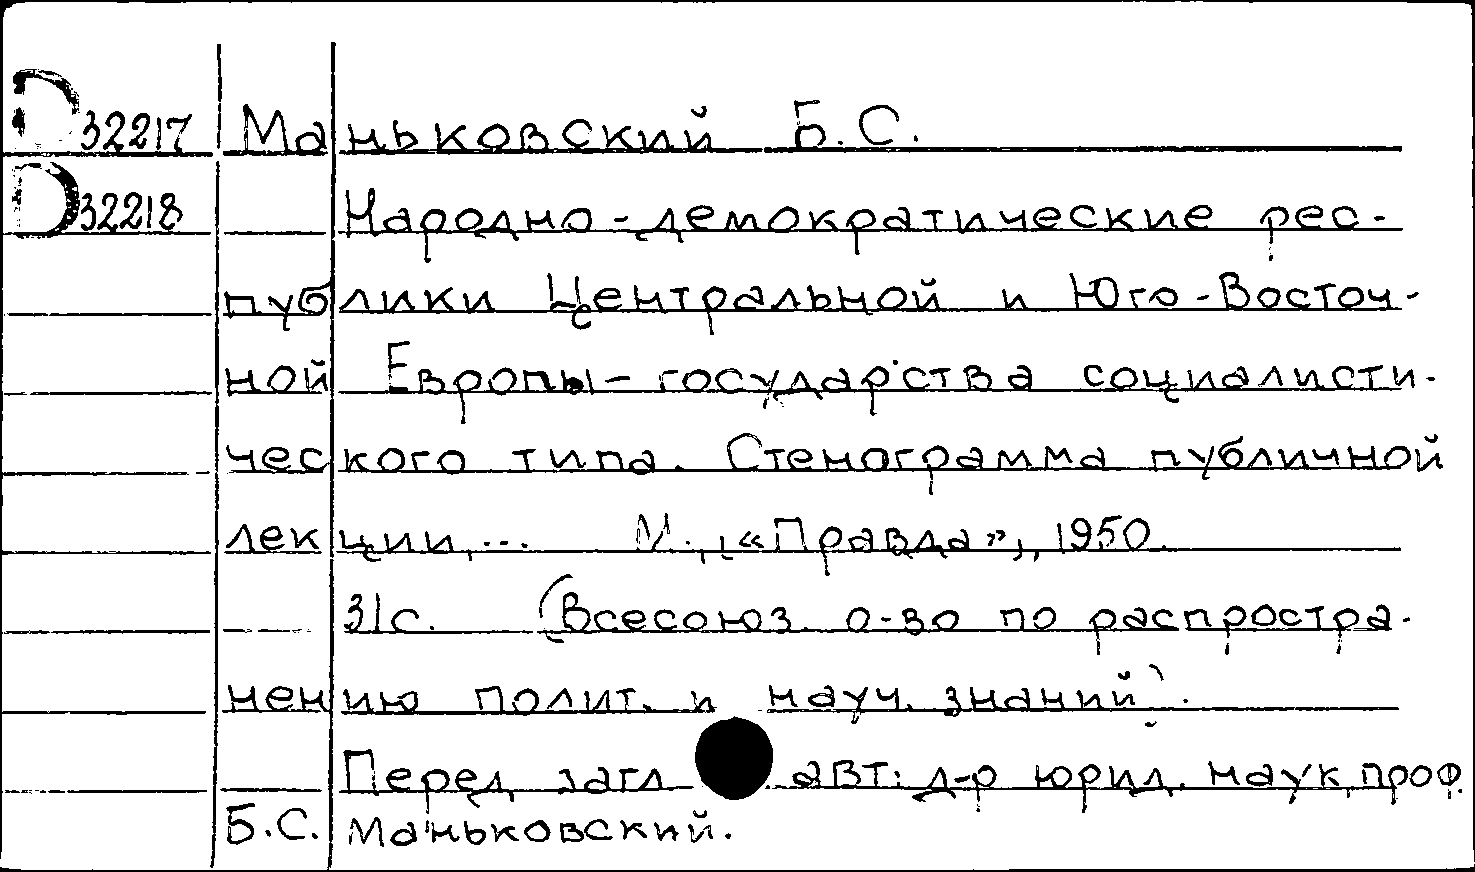 D 32217 Маньковский Б.С.
D 32218 Народно-демократические рес-
публики Центральной и Юго-Восточ-
ной Европы - государства социалисти-
ческого типа. Стенограмма публичной
лекции,... М., «Правда», 1950.
31с. (Всесоюз. о-во по распростра-
нению полит. и науч. знаний).
Перед загл авт: д-р юрид. наук, проф.
Б.С. Маньковский.